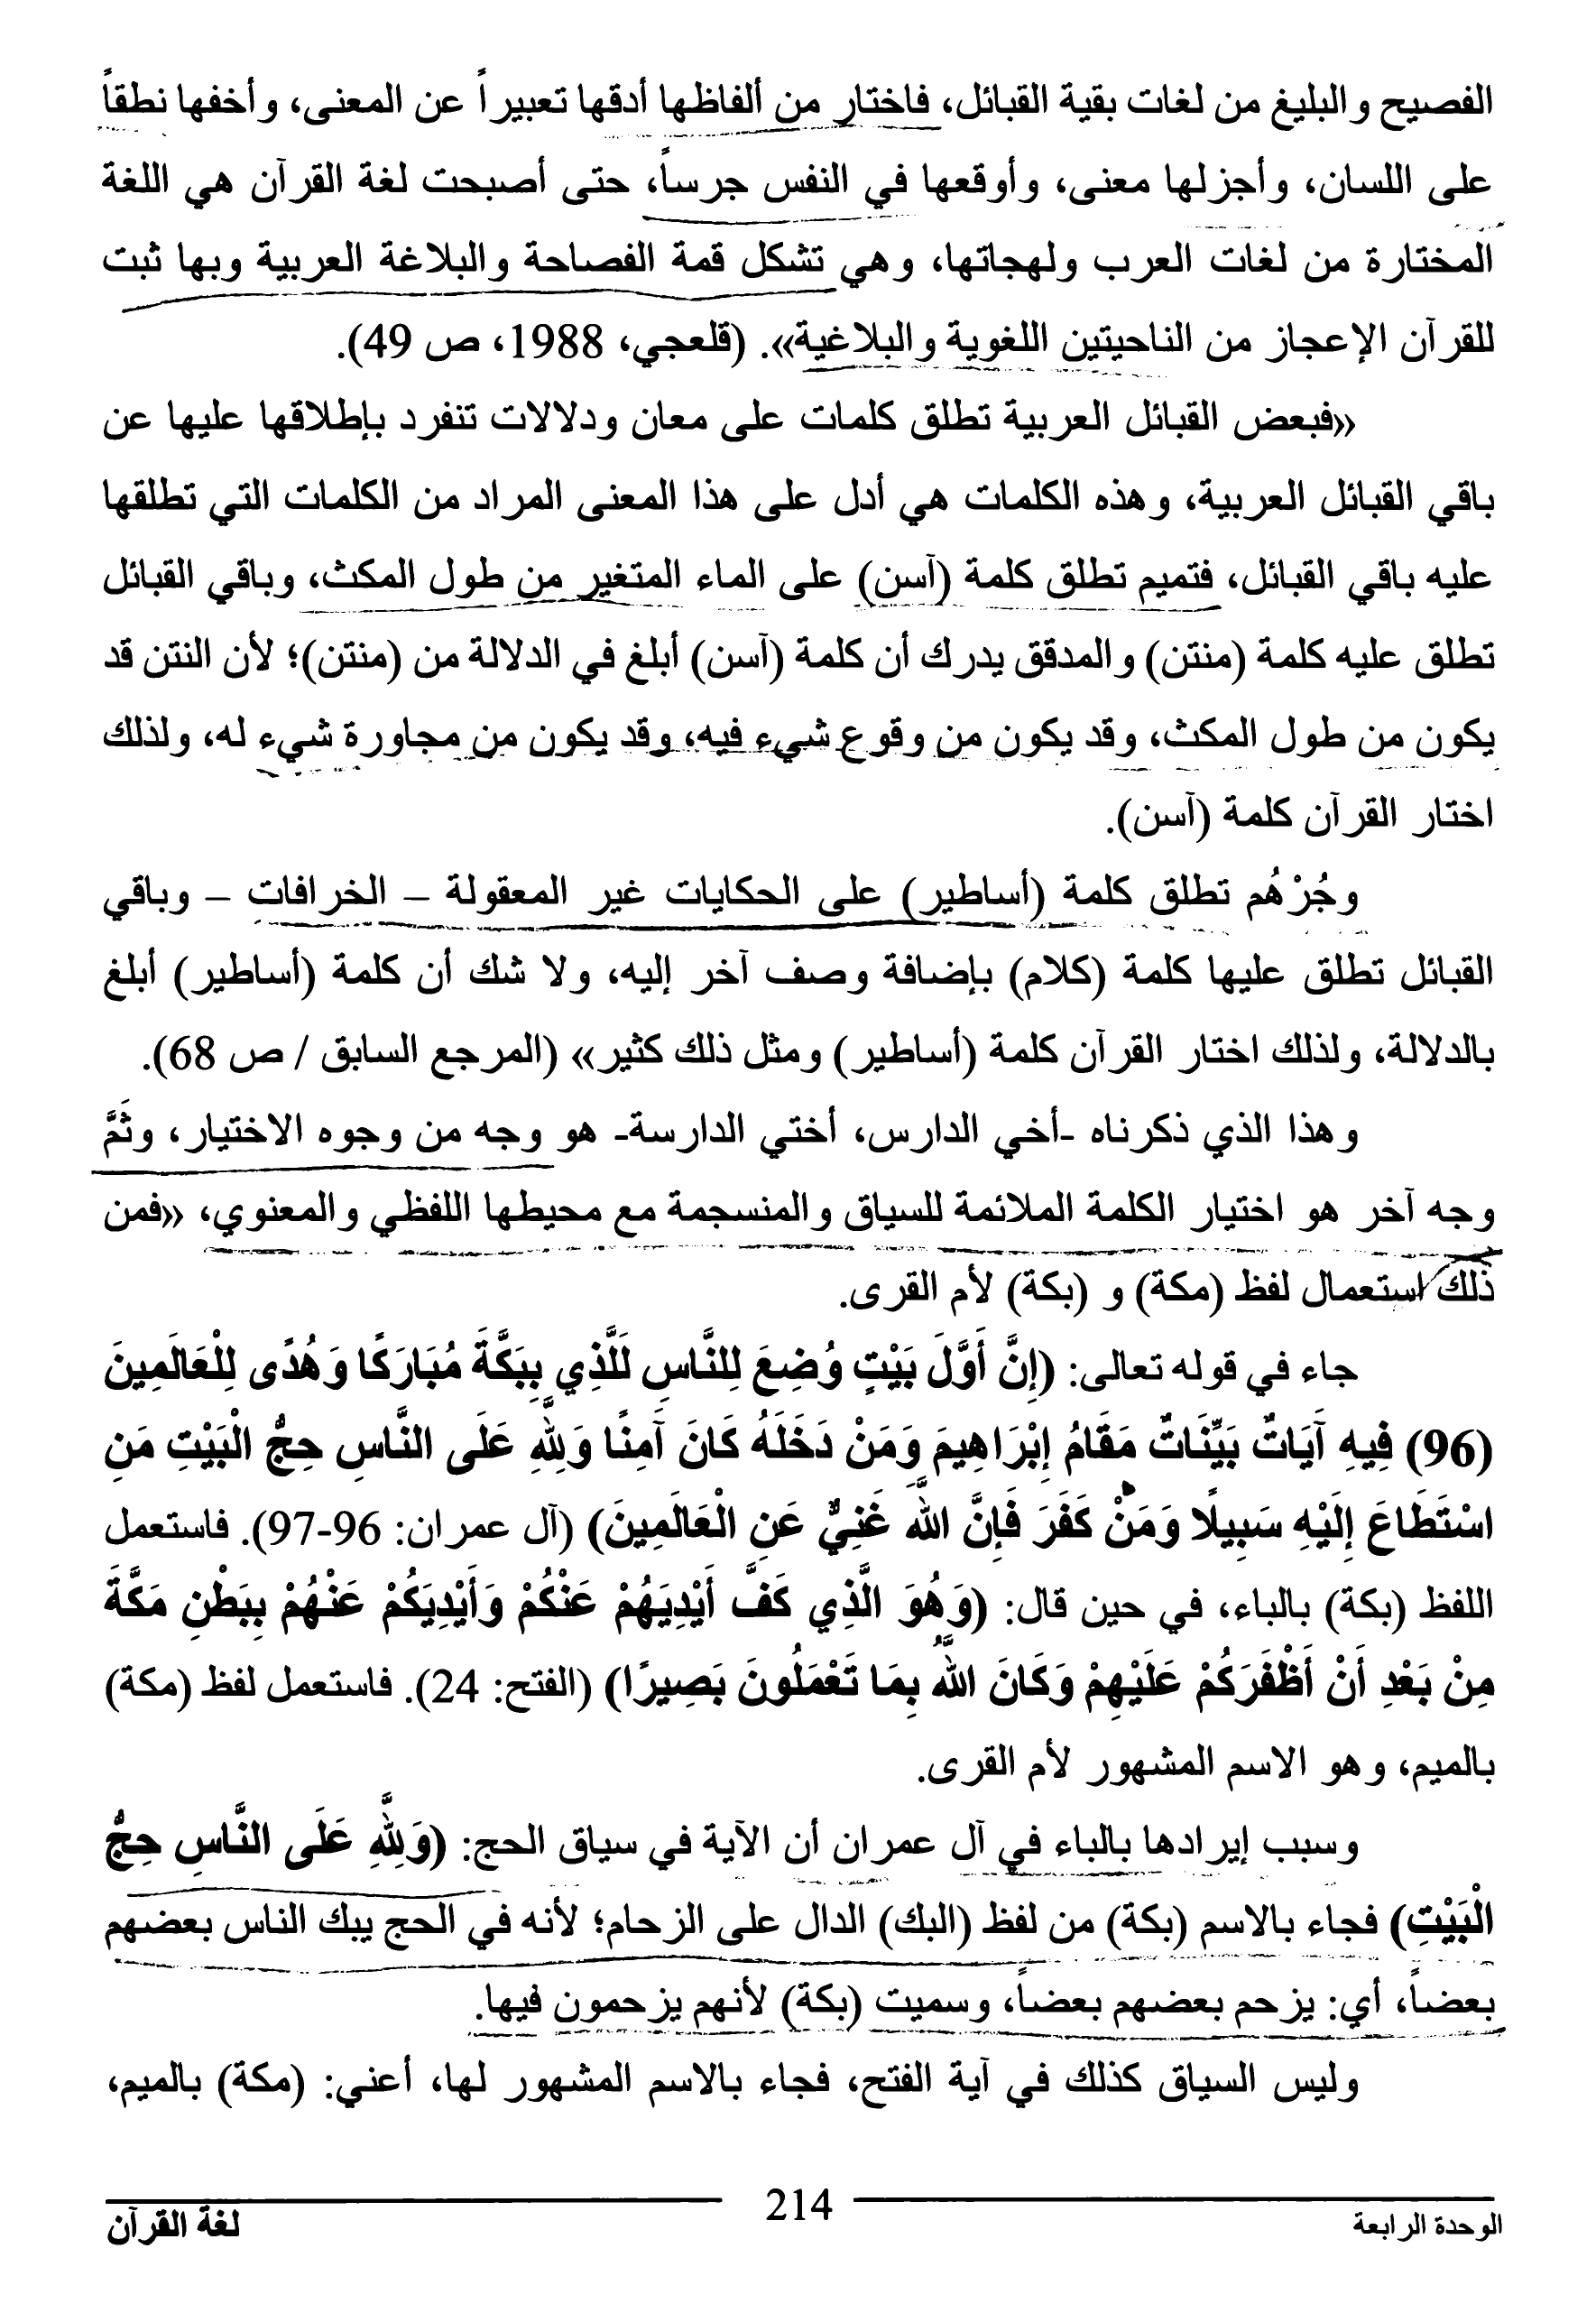 الفصيح والبليغ من لغات بقية القبائل، فاختار من ألفاظها أدقها تعبيراً عن المعنى، وأخفها نطقاً
على اللسان، وأجزلها معنى، وأوقعها في النفس جرساً، حتى أصبحت لغة القرآن هي اللغة
المختارة من لغات العرب ولهجاتها، وهي تشكل قمة الفصاحة والبلاغة العربية وبها ثبت
للقرآن الإعجاز من الناحيتين اللغوية والبلاغية». (قلعجي، 1988، ص 49).
«فبعض القبائل العربية تطلق كلمات على معان ودلالات تنفرد بإطلاقها عليها عن
باقي القبائل العربية، وهذه الكلمات هي أدل على هذا المعنى المراد من الكلمات التي تطلقها
عليه باقي القبائل، فتميم تطلق كلمة (آسن) على الماء المتغير من طول المكث، وباقي القبائل
تطلق عليه كلمة (منتن) والمدقق يدرك أن كلمة (آسن) أبلغ في الدلالة من (منتن)؛ لأن النتن قد
يكون من طول المكث، وقد يكون من وقوع شيء فيه، وقد يكون من مجاورة شيء له، ولذلك
اختار القرآن كلمة (آسن).
وجُرْهُم تطلق كلمة (أساطير) على الحكايات غير المعقولة – الخرافات – وباقي
القبائل تطلق عليها كلمة (كلام) بإضافة وصف آخر إليه، ولا شك أن كلمة (أساطير) أبلغ
بالدلالة، ولذلك اختار القرآن كلمة (أساطير) ومثل ذلك كثير» (المرجع السابق / ص 68).
وهذا الذي ذكرناه -أخي الدارس، أختي الدارسة- هو وجه من وجوه الاختيار، وثَمَّ
وجه آخر هو اختيار الكلمة الملائمة للسياق والمنسجمة مع محيطها اللفظي والمعنوي، «فمن
ذلك استعمال لفظ (مكة) و (بكة) لأم القرى.
جاء في قوله تعالى: (إِنَّ أَوَّلَ بَيْتٍ وُضِعَ لِلنَّاسِ لَلَّذِي بِبَكَّةَ مُبَارَكًا وَهُدًى لِلْعَالَمِينَ
(96) فِيهِ آَيَاتٌ بَيِّنَاتٌ مَقَامُ إِبْرَاهِيمَ وَمَنْ دَخَلَهُ كَانَ آَمِنًا وَلِلَّهِ عَلَى النَّاسِ حِجُّ الْبَيْتِ مَنِ
اسْتَطَاعَ إِلَيْهِ سَبِيلًا وَمَنْ كَفَرَ فَإِنَّ اللَّهَ غَنِيٌّ عَنِ الْعَالَمِينَ) (آل عمران: 96-97). فاستعمل
اللفظ (بكة) بالباء، في حين قال: (وَهُوَ الَّذِي كَفَّ أَيْدِيَهُمْ عَنْكُمْ وَأَيْدِيَكُمْ عَنْهُمْ بِبَطْنِ مَكَّةَ
مِنْ بَعْدِ أَنْ أَظْفَرَكُمْ عَلَيْهِمْ وَكَانَ اللَّهُ بِمَا تَعْمَلُونَ بَصِيرًا) (الفتح: 24). فاستعمل لفظ (مكة)
بالميم، وهو الاسم المشهور لأم القرى.
وسبب إيرادها بالباء في آل عمران أن الآية في سياق الحج: (وَلِلَّهِ عَلَى النَّاسِ حِجُّ
الْبَيْتِ) فجاء بالاسم (بكة) من لفظ (البك) الدال على الزحام؛ لأنه في الحج يبك الناس بعضهم
بعضاً، أي: يزحم بعضهم بعضاً، وسميت (بكة) لأنهم يزحمون فيها.
وليس السياق كذلك في آية الفتح، فجاء بالاسم المشهور لها، أعني: (مكة) بالميم،
الوحدة الرابعة 214 لغة القرآن